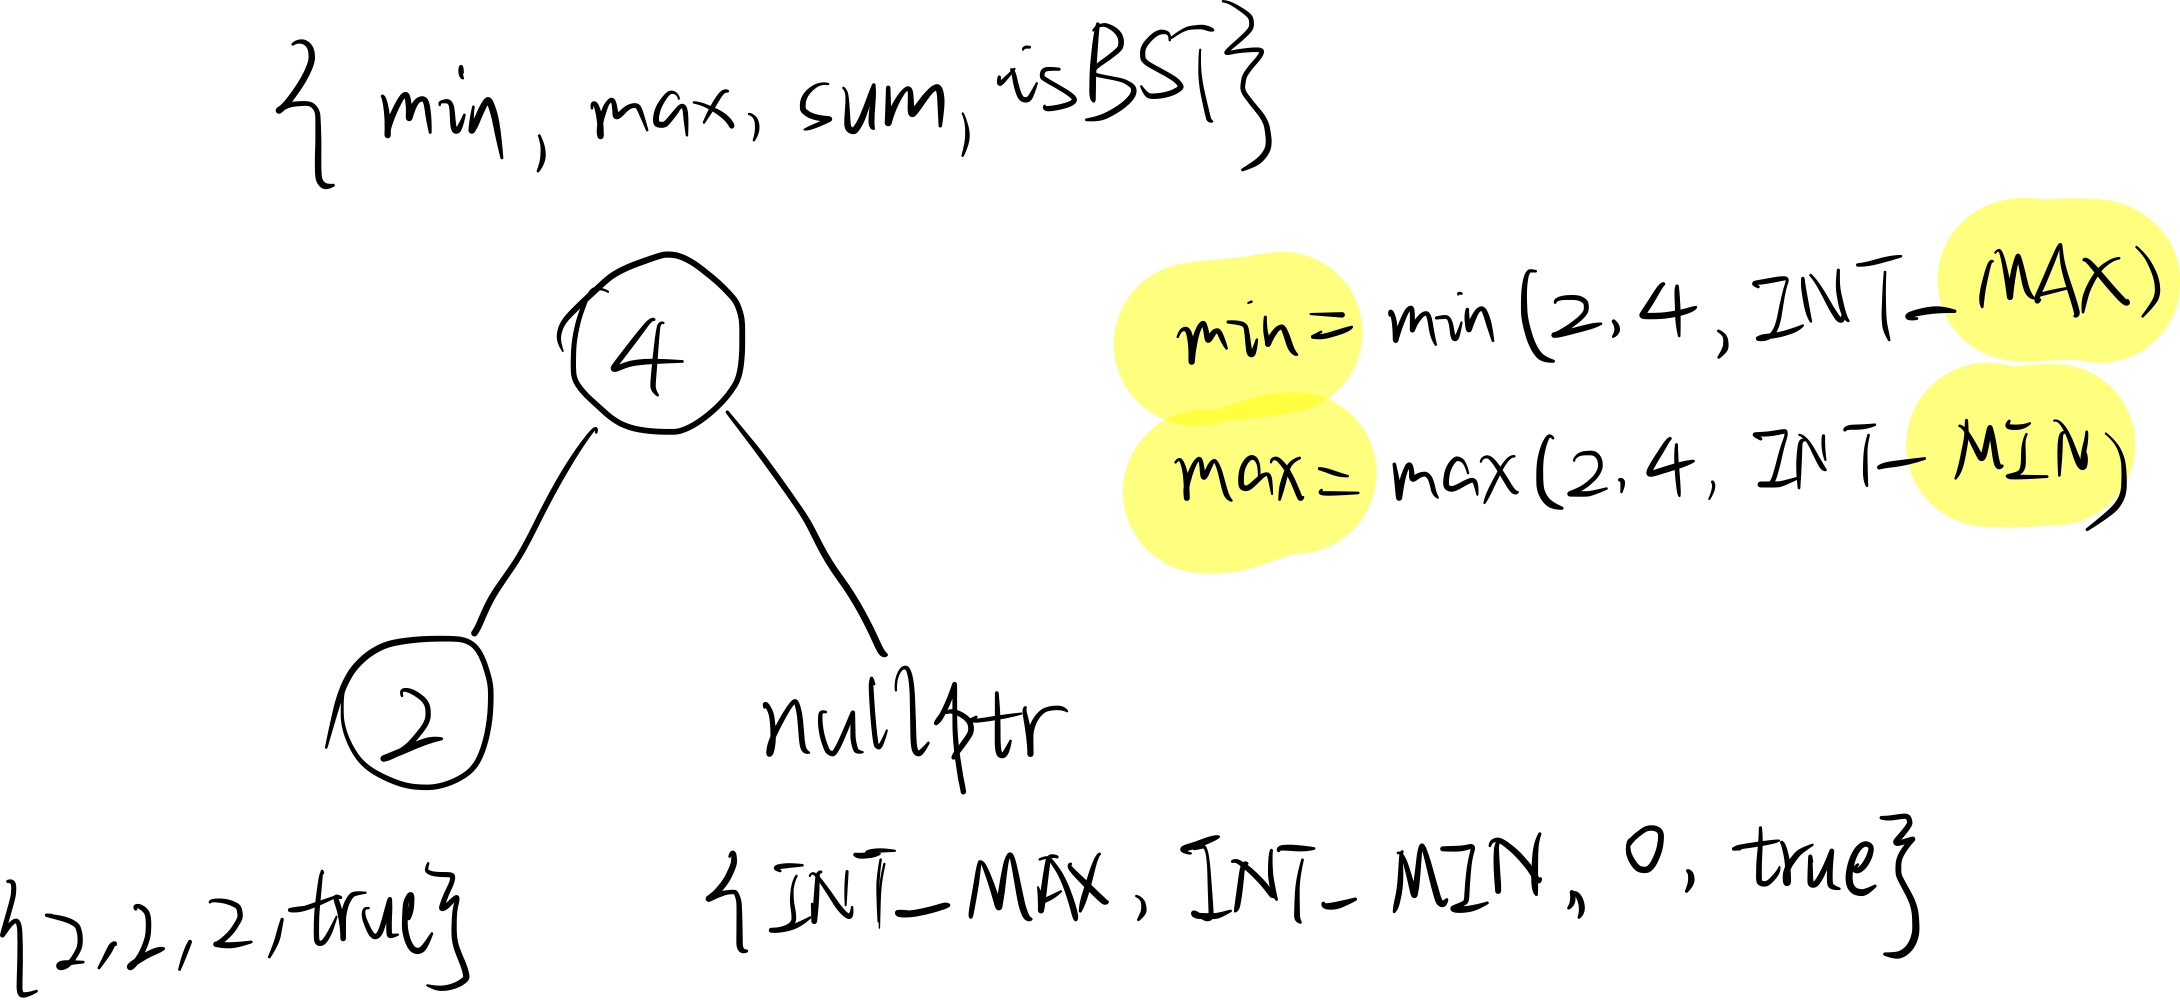 { min, max, sum, isBST}
4
min = min (2, 4, INT_MAX)
max = max (2, 4, INT_MIN)
2
nullptr
{2, 2, 2, true}
{INT_MAX, INT_MIN, 0, true}